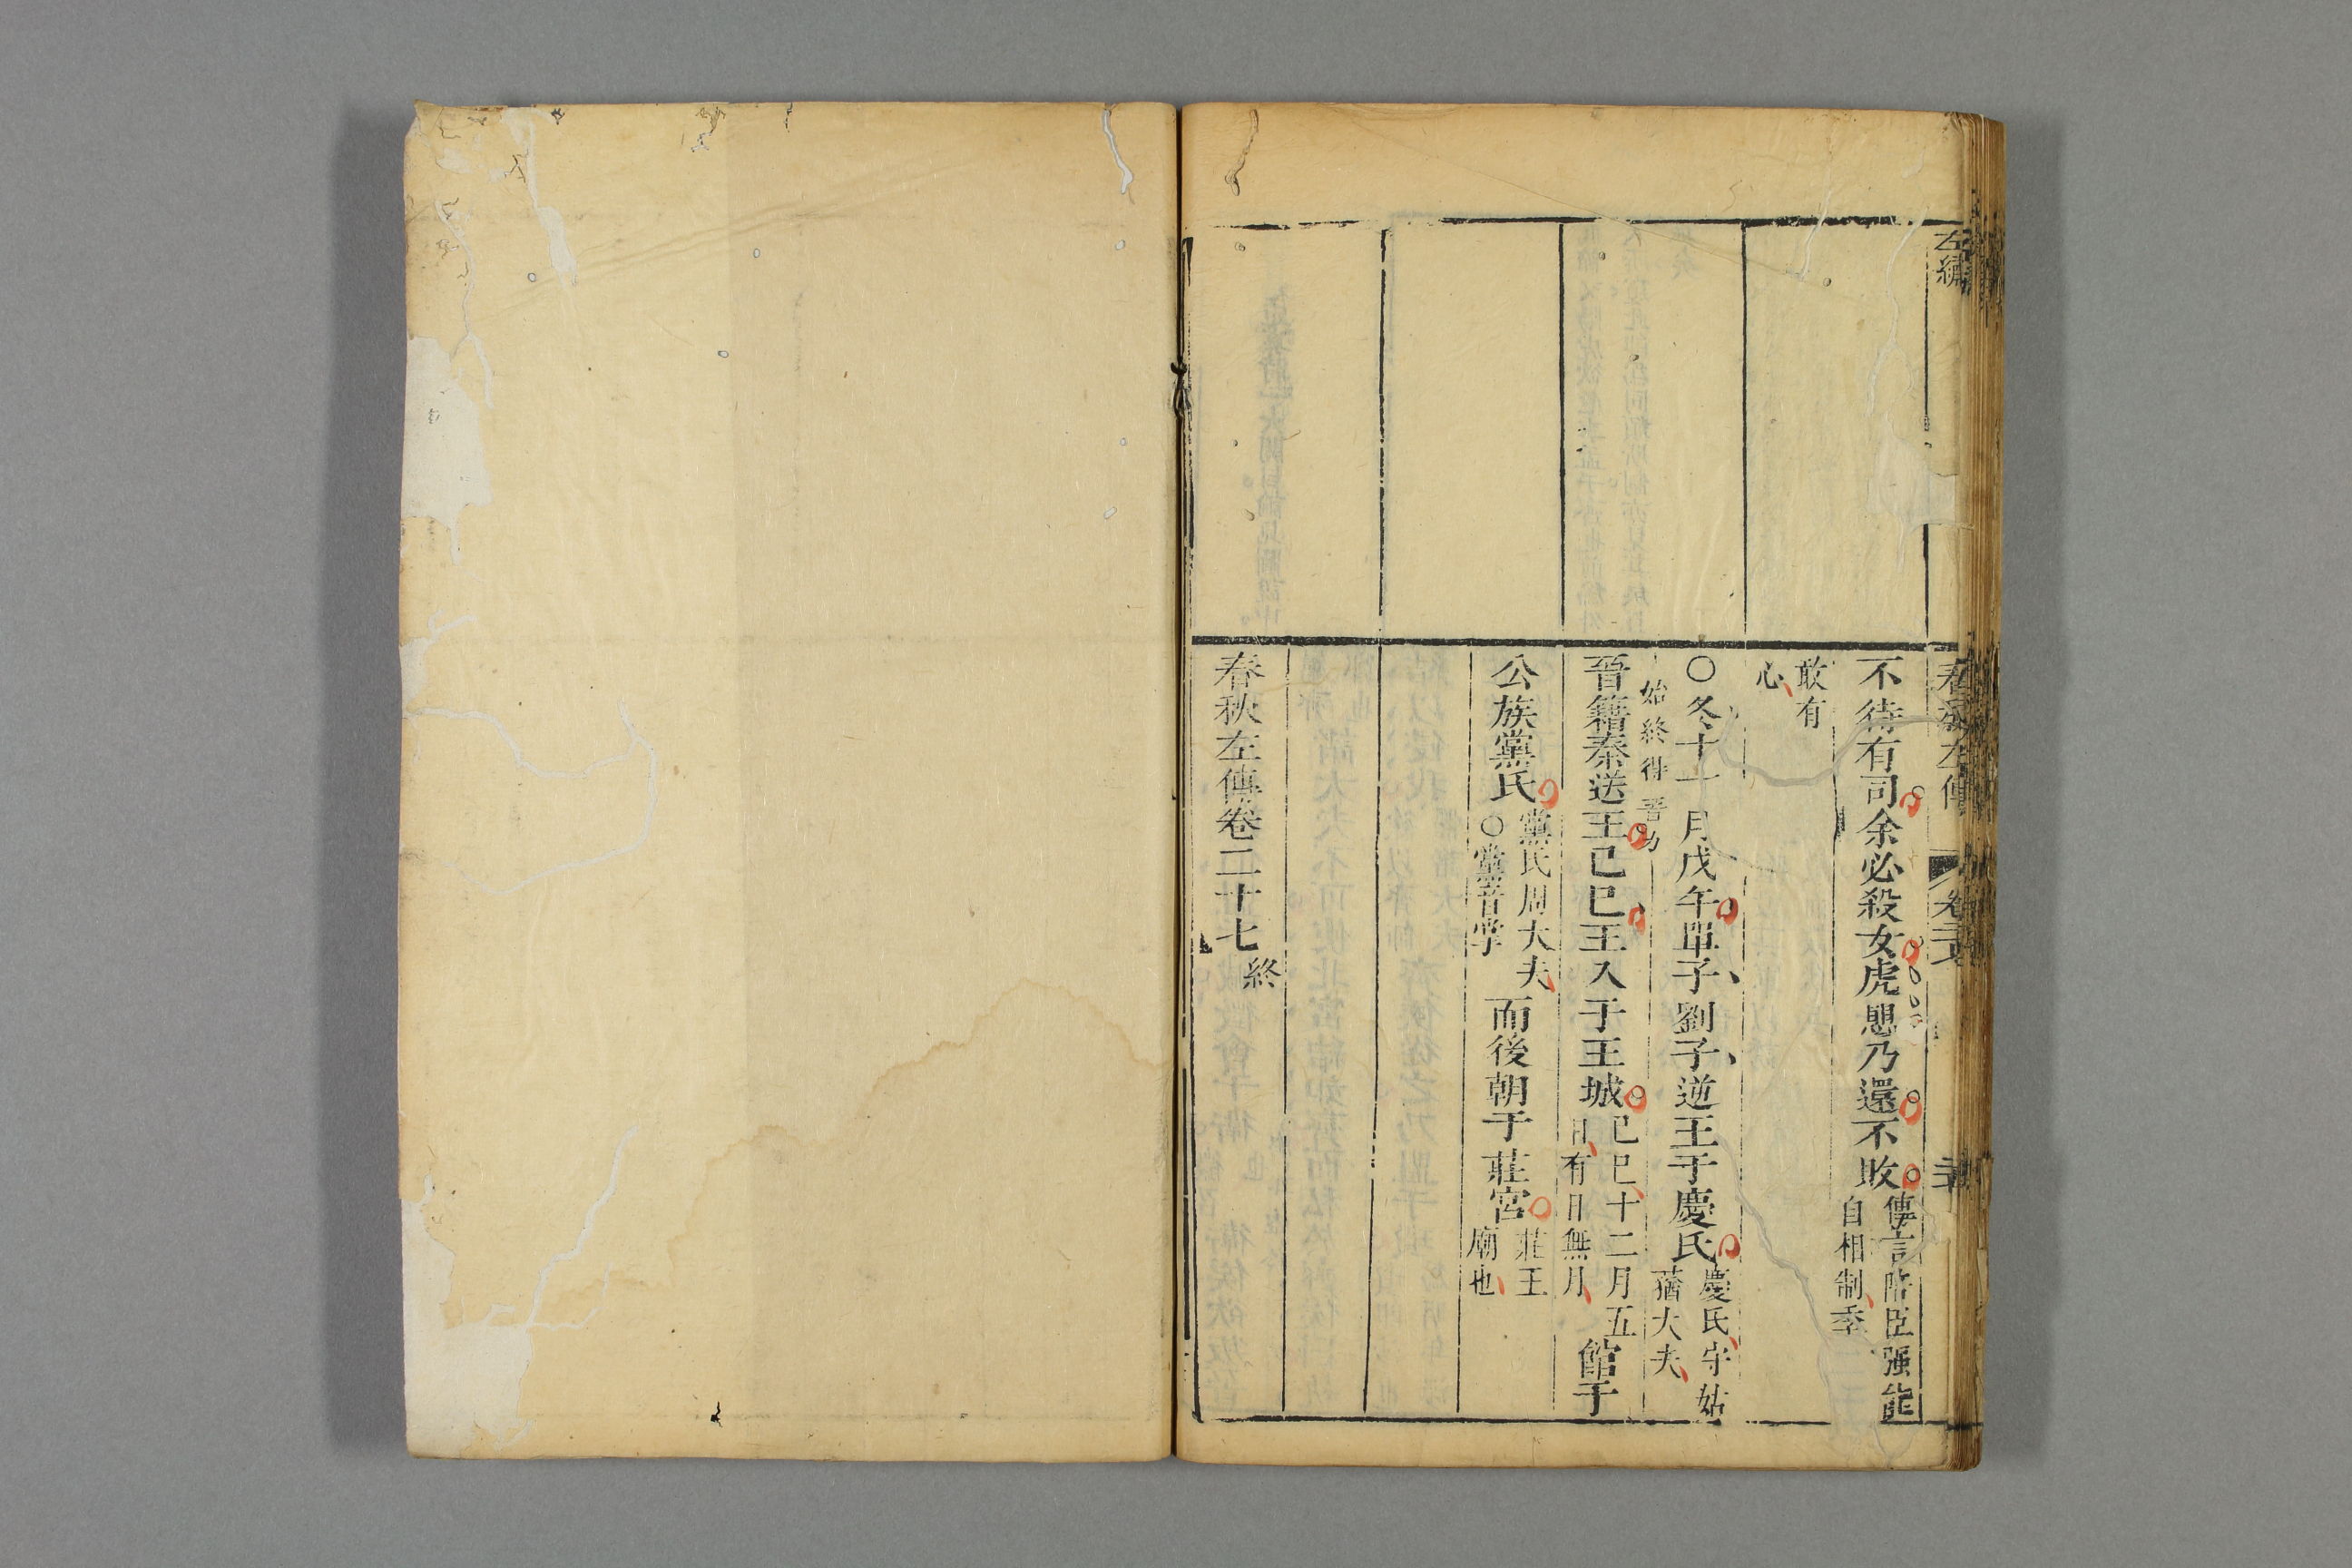 左繡
春秋左傳
不待有司余必殺女虎懼乃還不敗
傳言陪臣强能
自相制季
敢有
心
○冬十一月戊午單子劉子逆王于慶氏
慶氏守姑
蕕大夫
始終得晉力
晉籍秦送王己巳王入于王城
己巳十二月五
日有日無月
館于
公族黨氏
黨氏周大夫
○黨音掌
而後朝于莊宮
莊王
廟也
春秋左傳卷二十七
終